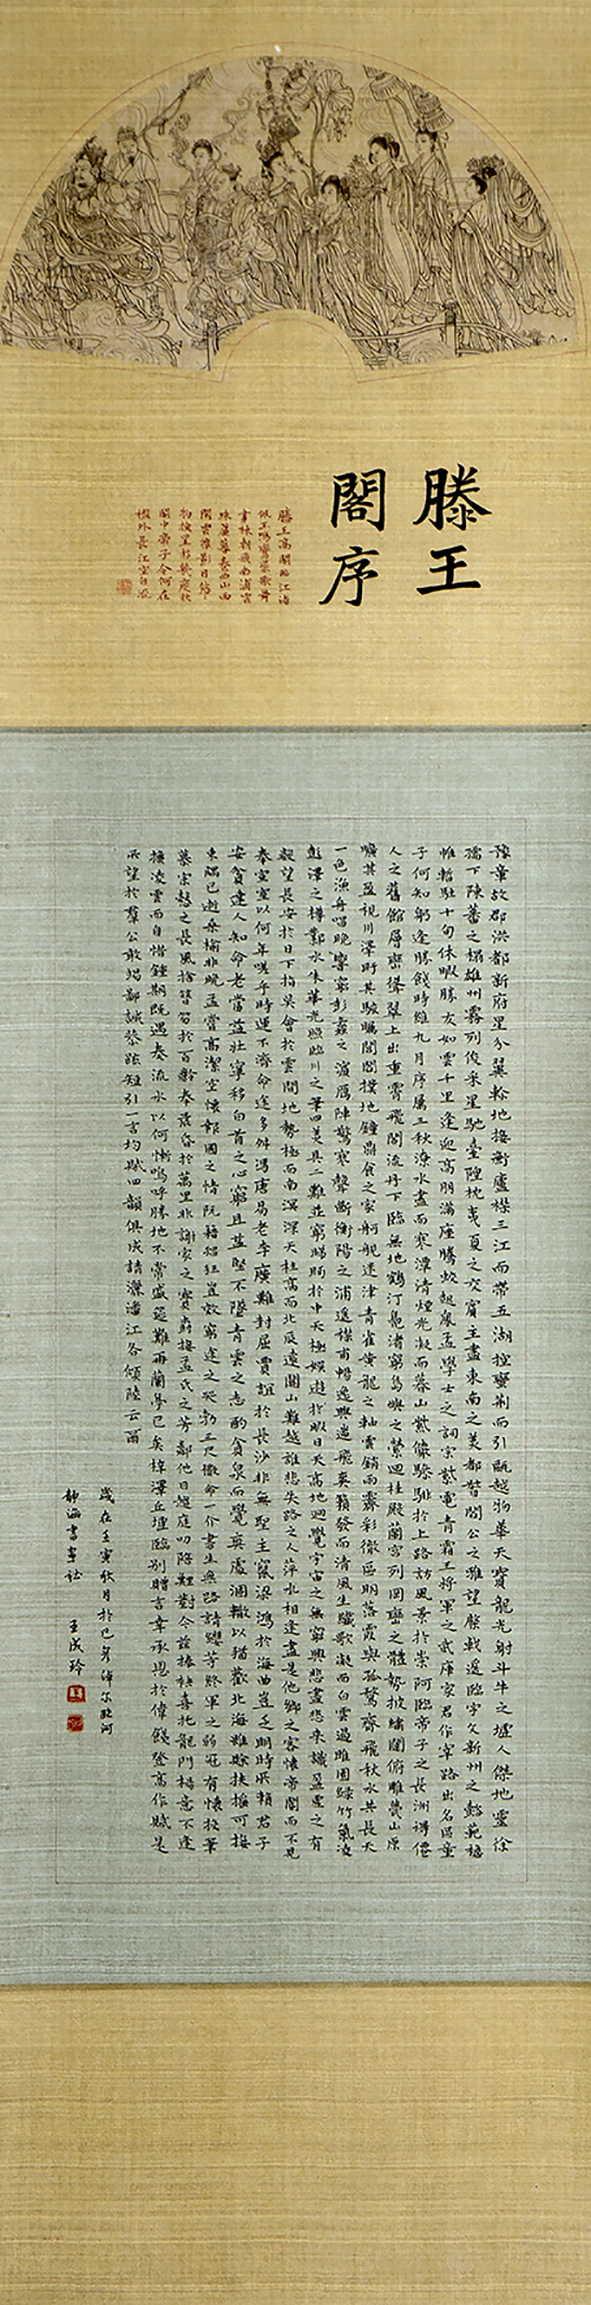 滕王
閣序
滕王高閣臨江渚
佩玉鳴鸞罷歌舞
畫棟朝飛南浦雲
珠簾暮卷西山雨
閒雲潭影日悠悠
物換星移幾度秋
閣中帝子今何在
檻外長江空自流
豫章故郡洪都新府星分翼軫地接衡廬襟三江而帶五湖控蠻荊而引甌越物華天寶龍光射斗牛之墟人傑地靈徐
孺下陳蕃之榻雄州霧列俊采星馳臺隍枕夷夏之交賓主盡東南之美都督閻公之雅望棨戟遙臨宇文新州之懿範襜
帷暫駐十旬休暇勝友如雲千里逢迎高朋滿座騰蛟起鳳孟學士之詞宗紫電青霜王將軍之武庫家君作宰路出名區童
子何知躬逢勝餞時維九月序屬三秋潦水盡而寒潭清煙光凝而暮山紫儼驂騑於上路訪風景於崇阿臨帝子之長洲得僊
人之舊館層巒聳翠上出重霄飛閣流丹下臨無地鶴汀鳧渚窮島嶼之縈迴桂殿蘭宮列岡巒之體勢披繡闥俯雕甍山原
曠其盈視川澤盱其駭矚閭閻撲地鐘鼎食之家舸艦迷津青雀黃龍之軸雲銷雨霽彩徹區明落霞與孤鶩齊飛秋水共長天
一色漁舟唱晚響窮彭蠡之濱雁陣驚寒聲斷衡陽之浦遙襟甫暢逸興遄飛爽籟發而清風生纖歌凝而白雲遏睢園綠竹氣凌
彭澤之樽鄴水朱華光照臨川之筆四美具二難並窮睇眄於中天極娛遊於暇日天高地迥覺宇宙之無窮興盡悲來識盈虛之有
數望長安於日下指吳會於雲間地勢極而南溟深天柱高而北辰遠關山難越誰悲失路之人萍水相逢盡是他鄉之客懷帝閽而不見
奉宣室以何年嗟乎時運不濟命途多舛馮唐易老李廣難封屈賈誼於長沙非無聖主竄梁鴻於海曲豈乏明時所賴君子
安貧達人知命老當益壯寧移白首之心窮且益堅不墜青雲之志酌貪泉而覺爽處涸轍以猶歡北海雖賒扶搖可接
東隅已逝桑榆非晚孟嘗高潔空懷報國之情阮籍猖狂豈效窮途之哭勃三尺微命一介書生無路請纓等終軍之弱冠有懷投筆
慕宗愨之長風捨簪笏於百齡奉晨昏於萬里非謝家之寶樹接孟氏之芳鄰他日趨庭叨陪鯉對今茲捧袂喜托龍門楊意不逢
撫凌雲而自惜鍾期既遇奏流水以何慚嗚呼勝地不常盛筵難再蘭亭已矣梓澤丘墟臨別贈言幸承恩於偉餞登高作賦是
所望於羣公敢竭鄙誠恭疏短引一言均賦四韻俱成請灑潘江各傾陸云爾
歲在壬寅秋月於巴彥淖爾臨河
靜涵書畫社 王成玲